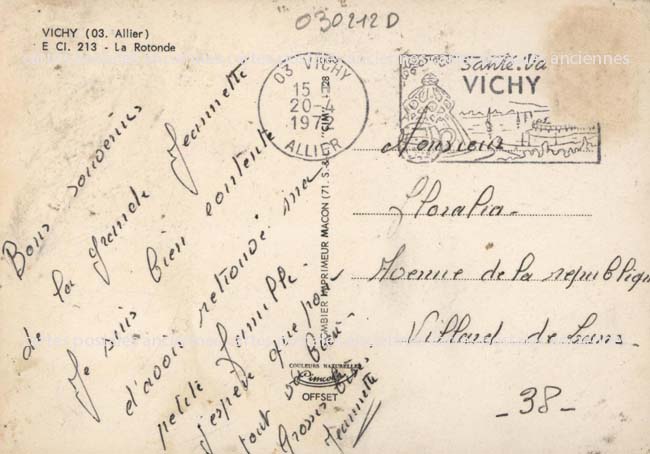 030212D
VICHY (03. Allier)
E Cl. 213 - La Rotonde
03 VICHY
15
20-4
ALLIER
Santé.Va
VICHY
Bons souvenirs
de la grande Jeannette
Je suis bien contente
d'avoir retrouvé ma
petite famille
j'espère que pour
tout va bien
Grosses bises
Jeannette
COMBIER IMPRIMEUR MACON (71. S.-&
COULEURS NATURELLES
Cimcolor
OFFSET
Monsieur
Floralia
Avenue de la republique
Villard de Lans
-38-
cartes postales anciennes